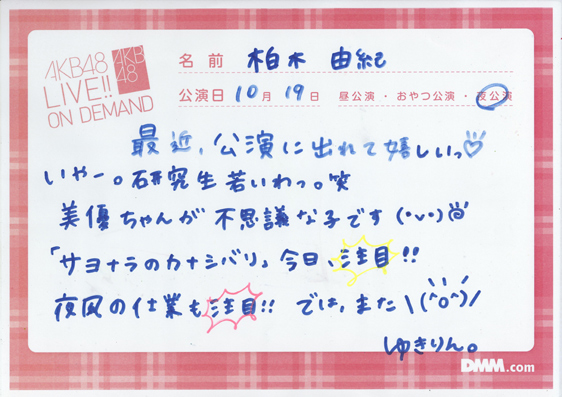 AKB48
LIVE!!
ON DEMAND
AKB
48
名前 柏木 由紀
公演日 10月 19日 昼公演・おやつ公演・夜公演
最近、公演に出れて嬉しいっ♡
いやー。研究生若いわっ。笑
美優ちゃんが不思議な子です(・v・)
「サヨナラのカナシバリ」今日、注目!!
夜風の仕業も注目!! では、また\(^o^)/
ゆきりん。
DMM.com